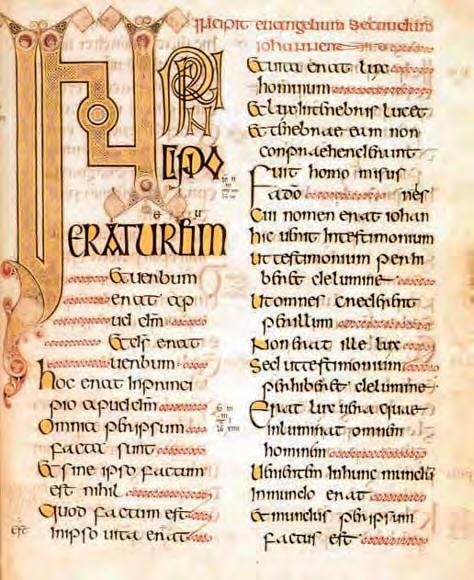 Incipit euangelium secundum
iohannen
IN PRIN
CIPIO
ERAT UERBUM
Et uerbum
erat ap
ud dm
Et ds erat
uerbum
hoc erat in princi
pio apud dm
Omnia per ipsum
facta sunt
Et sine ipso factum
est nihil
Quod factum est
est
In ipso uita erat
Et uita erat lux
hominum
Et lux in tenebris lucet
Et tenebrae eam non
conpraehenderunt
Fuit homo misus
a do nes
Cui nomen erat iohan
hic uenit in testimonium
Ut testimonium perhi
beret de lumine
Ut omnes crederent
per illum
Non erat ille lux
Sed ut testimonium
perhiberet de lumine
Erat lux uera quae
inluminat omnem
hominem
Uenientem in hunc mundum
In mundo erat
Et mundus per ipsum
factus est